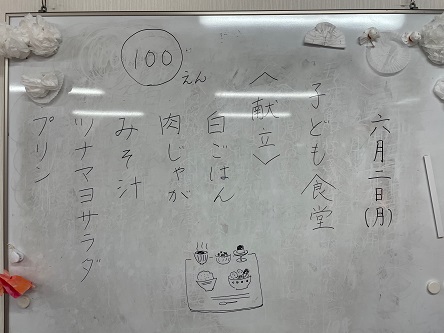 六月二日(月)
子ども食堂
〈献立〉
白ごはん
肉じゃが
みそ汁
ツナマヨサラダ
プリン
100えん